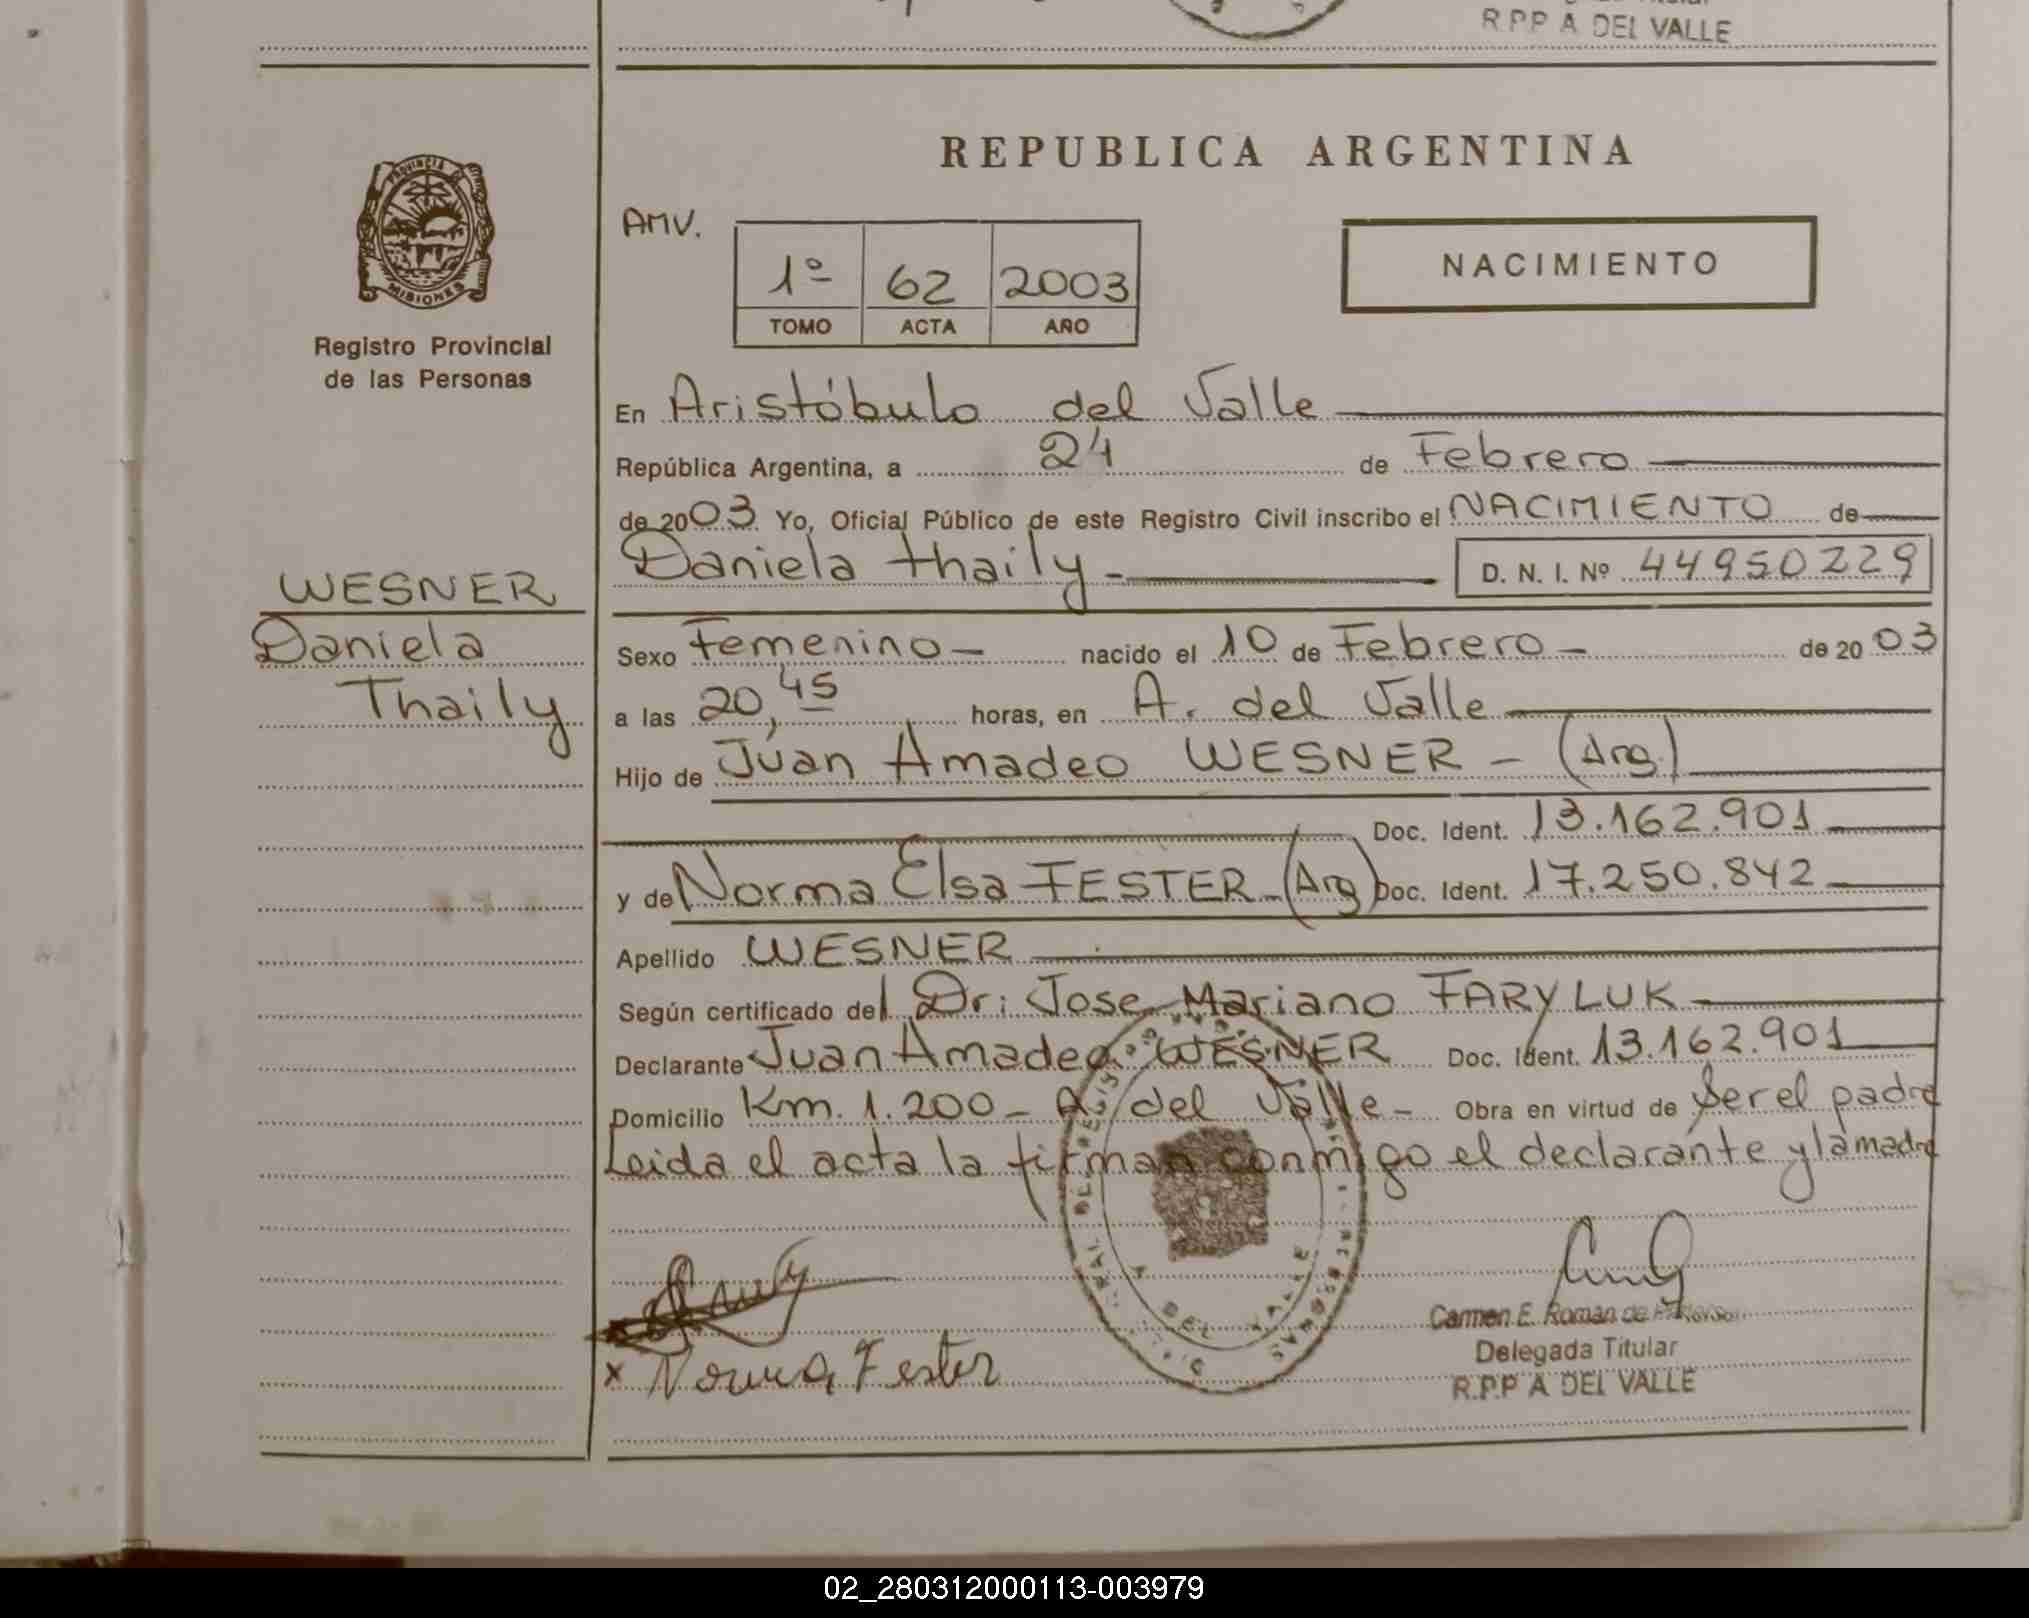 R.P.P A DEL VALLE
REPUBLICA ARGENTINA
PROVINCIA DE
MISIONES
Registro Provincial
de las Personas
AMV.
1º 62 2003
TOMO ACTA AÑO
NACIMIENTO
En Aristóbulo del Valle
República Argentina, a 24 de Febrero
de 2003 Yo, Oficial Público de este Registro Civil inscribo el NACIMIENTO de
Daniela thaily - D. N. I. Nº 44950229
WESNER
Daniela
Thaily
Sexo Femenino - nacido el 10 de Febrero - de 20 03
a las 20,45 horas, en A. del Valle
Hijo de Juan Amadeo WESNER - (Arg.)
Doc. Ident. 13.162.901
y de Norma Elsa FESTER - (Arg) Doc. Ident. 17.250.842
Apellido WESNER
Según certificado del Dr: Jose Mariano FARYLUK
Declarante Juan Amadeo WESNER Doc. Ident. 13.162.901
Domicilio Km. 1.200 - A. del Valle - Obra en virtud de Ser el padre
Leida el acta la firman conmigo el declarante y la madre
A DEL VALLE
x Norma Fester
Carmen E. Roman de
Delegada Titular
R.P.P A DEL VALLE
02_280312000113-003979